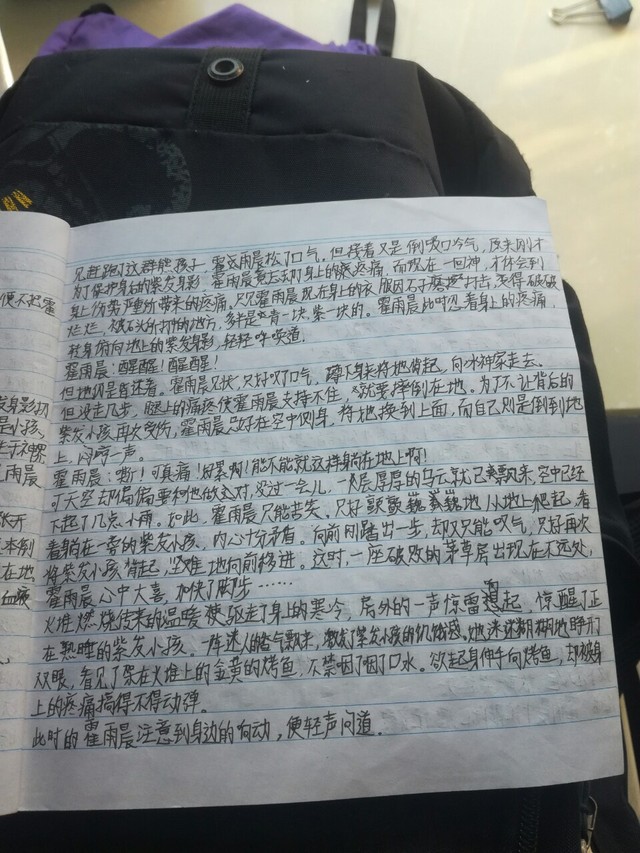 见赶跑了这群熊孩子，霍雨晨松了口气，但接着又是倒吸口冷气，原来刚才
为了保护身后的紫发身影，霍雨晨竟忘了对身上的疼痛，而现在一回神，才体会到
身上伤势严重所带来的疼痛，只见霍雨晨现在身上的衣服因石子打击，变得破破
烂烂，被石头所打的地方，多半是青一块紫一块的。霍雨晨此时忍着身上的疼痛，
转身俯向地上的紫发身影，轻轻呼唤道。
霍雨晨：醒醒！醒醒！
但她仍是昏迷着。霍雨晨见状，只好叹了口气，蹲下身来将她背起，向水神家走去。
但没走几步，腿上的痛疼使霍雨晨支持不住，就要摔倒在地。为了不让背后的
紫发小孩再次受伤，霍雨晨只好在空中侧身，将她换到上面，而自己则是倒到地
上，闷哼一声。
霍雨晨：嘶！可真痛！好累啊！能不能就这样躺在地上啊！
可天空却偏偏要和他做对，没过一会儿，一层厚厚的乌云就已飘来，空中已经
下起了几点小雨。如此，霍雨晨只能苦笑，只好颤颤巍巍地从地上爬起，看
着躺在一旁的紫发小孩，内心十分矛盾。向前刚踏出一步，却又只能叹气，只好再次
将紫发小孩背起，坚难地向前移进。这时，一座破败的茅草屋出现在不远处，
霍雨晨心中大喜，加快了脚步……
火堆燃烧传来的温暖使驱走了身上的寒冷，屋外的一声惊雷响起，惊醒了正
在熟睡的紫发小孩。一阵迷人的香气飘来，紫发小孩的饥饿感，她迷迷糊糊地睁开
双眼，看见了架在火堆上的金黄的烤鱼，不禁咽了咽口水。欲起身伸手向烤鱼，却被身
上的疼痛搞得不得动弹。
此时的霍雨晨注意到身边的响动，便轻声问道。
便不起霍
发身影切
是小孩，
生于神
雨晨
张开
本倒
在地
血液